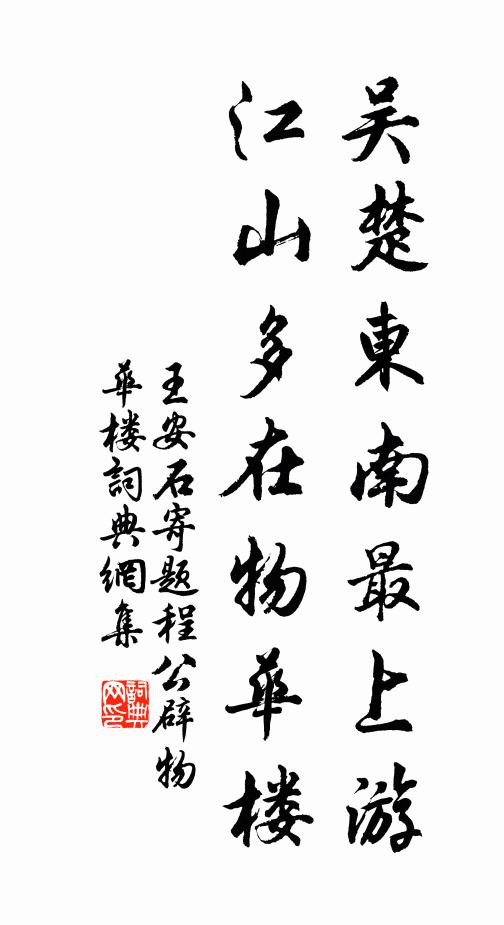 吴楚東南最上游
江山多在物華楼
王安石寄题程公辟物
華楼詞典網集
詞典
网印